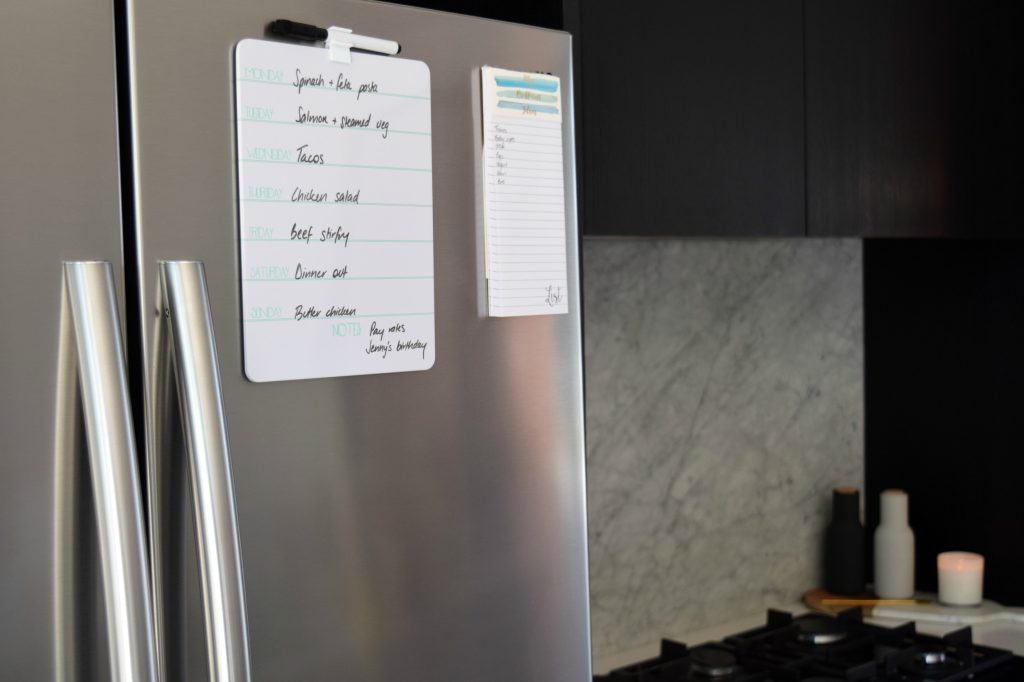 MONDAY Spinach + feta pasta
TUESDAY Salmon + steamed veg
WEDNESDAY Tacos
THURSDAY Chicken salad
FRIDAY Beef stirfry
SATURDAY Dinner out
SUNDAY Butter chicken
NOTES Pay rates
Jenny's birthday
List